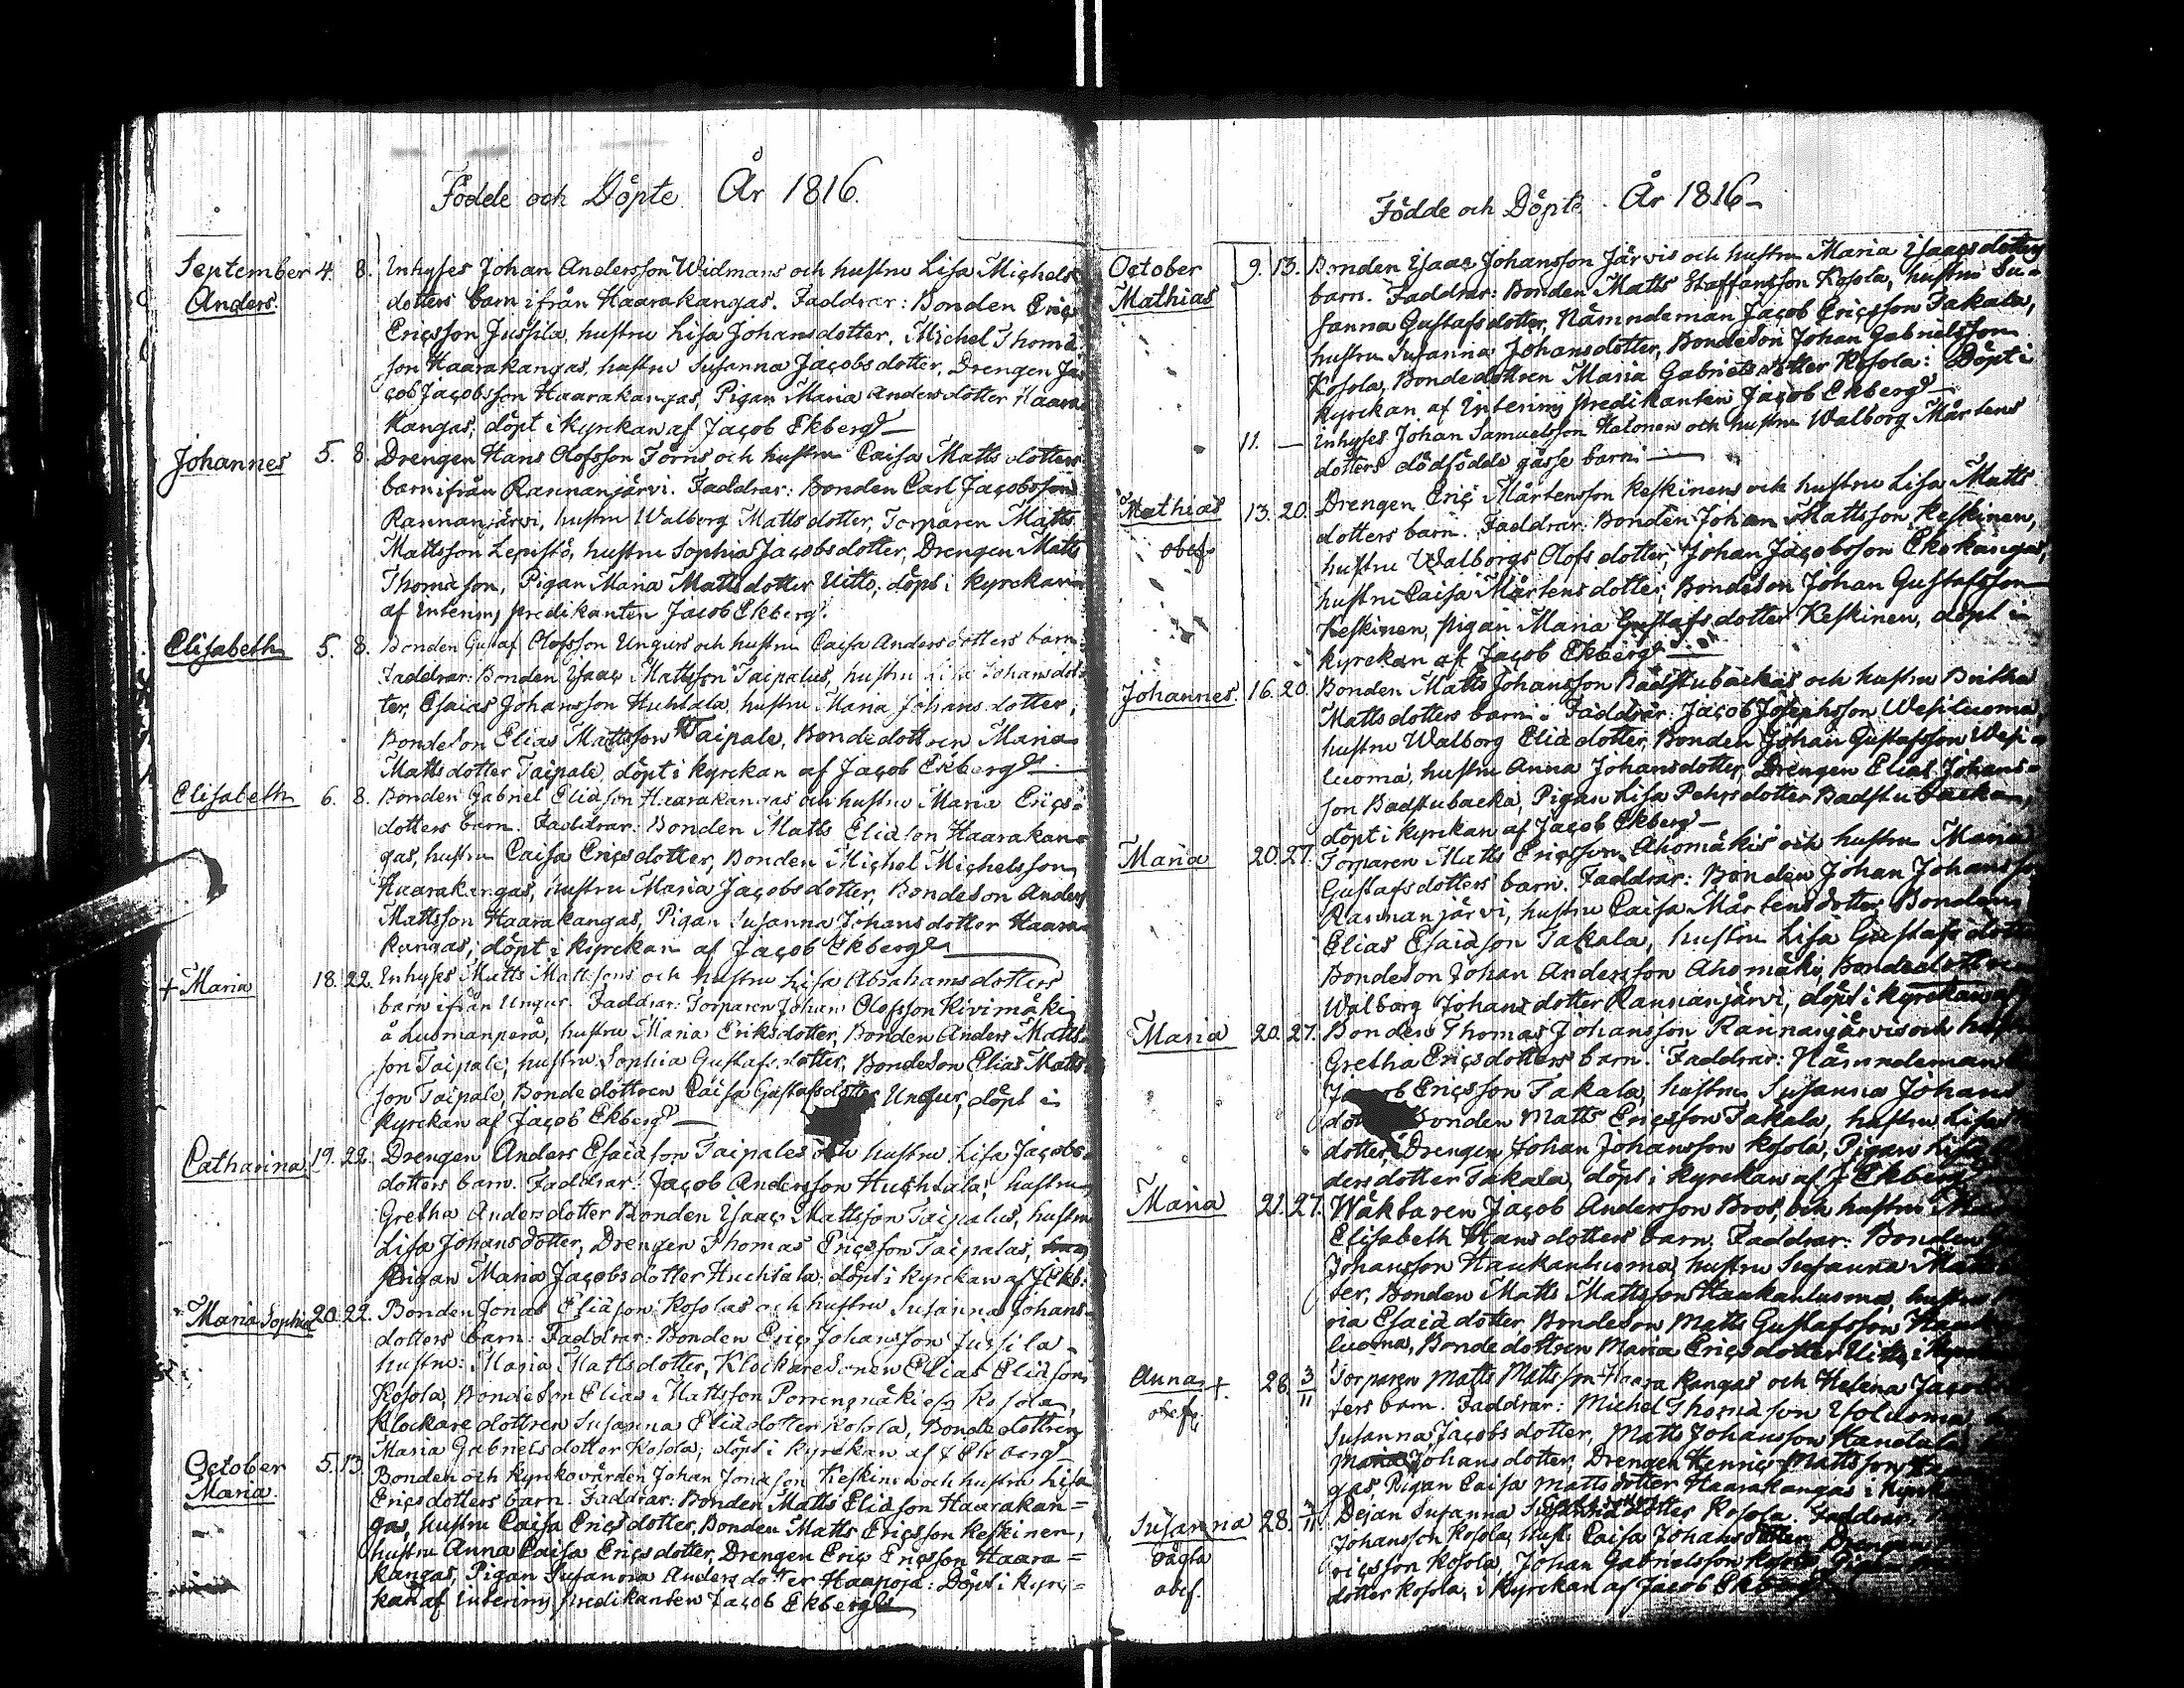 Födde och Döpte År 1816.
September 4. 8. Inhyses Johan Andersson Widmans och hustru Lisa Michels
Anders. dotters barn ifrån Haarakangas. Faddrar: Bonden Eriç
Eriçsson Jussila, hustru Lisa Johansdotter, Michel Thoma
son Haarakangas, hustru Susanna Jaçobsdotter, Drengen Ja
çob Jaçobsson Haarakangas, Pigan Maria Andersdotter Haara
kangas, döpt i Kyrckan af Jaçob Ekberg
Johannes 5. 8. Drengen Hans Olofsson Törns och hustru Caisa Matts dotters
barn ifrån Rannanjärvi. Faddrar: Bonden Carl Jaçobsson
Rannanjärvi, hustru Walborg Mattsdotter, Torparen Matts
Mattsson Lepistö, hustru Sophia Jaçobsdotter, Drengen Matts
Thomason, Pigan Maria Mattsdotter Uitto, döpt i kyrckan
af Interims predikanten Jacob Ekberg.
Elisabeth 5. 8. Bonden Gustaf Olofsson Ungurs och hustru Caisa Andersdotters barn
Faddrar: Bonden Isaac Mattsson Taipalus, hustru Lisa Johansdot
ter, Esaias Johansson Huhtala, hustru Maria Johansdotter,
Bondeson Elias Mattsson Taipale, Bondedottren Maria
Mattsdotter Taipale, döpt i kyrckan af Jaçob Ekberg
Elisabeth 6. 8. Bonden Gabriel Eliason Haarakangas och hustru Maria Eriçs
dotters barn. Faddrar: Bonden Matts Eliason Haarakan
gas, hustru Caisa Eriçsdotter, Bonden Michel Michelsson
Haarakangas, hustru Maria Jaçobsdotter, Bondeson Anders
Mattsson Haarakangas, Pigan Susanna Johansdotter Haara
kangas, döpt i kyrckan af Jaçob Ekberg
+ Maria 18. 22. Inhyses Matts Mattssons och hustru Lisa Abrahamsdotters
barn ifrån Ungur. Faddrar: Torparen Johan Olofsson Kivimäki
å Luomanperä, hustru Maria Eriksdotter, Bonden Anders Matts
son Taipale, hustru Sophia Gustafsdotter, Bondeson Elias Matts
son Taipale, Bondedottren Caisa Gustafsdotter Ungur, döpt i
kyrckan af Jaçob Ekberg
Catharina 19. 22. Drengen Anders Esaiason Taipales och hustru Lisa Jaçobs
dotters barn. Faddrar: Jaçob Andersson Huchtala, hustru
Gretha Andersdotter Bonden Isaac Mattsson Taipalus, hustru
Lisa Johansdotter, Drengen Thomas Eriçsson Taipalas,
Pigan Maria Jaçobsdotter Huchtala, döpt i kyrckan af J Ekb:
Maria Sophia 20. 22. Bonden Jonas Eliason Kosolas och hustru Susanna Johans
dotters barn: Faddrar: Bonden Eriç Johansson Jussila
hustru: Maria Mattsdotter, Klockaresonen Elias Eliason
Kosola, Bondeson Elias Mattsson Kosola,
Klockare dottren Susanna Eliadotter Kosola, Bonde dottren
Maria Gabrielsdotter Kosola, döpt i kyrckan af J Ekberg
October 5. 13. Bonden och kyrckovärden Johan Jonason Keskinen och hustru Lisa
Maria. Eriçsdotters barn. Faddrar: Bonden Matts Eliason Haarakan=
gas, hustru Caisa Eriçsdotter, Bonden Matts Eriçsson Keskinen,
hustru Anna Caisa Eriçsdotter, Drengen Eriç Eriçsson Haara=
kangas, Pigan Susanna Andersdotter Haapoja: Döpt i kyrç=
kan af interims predikanten Jacob Ekberg
Födde och Döpte År 1816
October 9. 13. Bonden Isaac Johansson Järvis och hustru Maria Isaacsdotters
Mathias barn. Faddrar: Bonden Matts Staffansson Kosola, hustru Su=
sanna Gustafsdotter, Nämndeman Jaçob Eriçsson Takala,
hustru Susanna Johansdotter, Bondeson Johan Gabrielsson
Kosola, Bondedottren Maria Gabrielsdotter Kosola: Döpt i
kyrckan af Interims predikanten Jaçob Ekberg
11. — Inhyses Johan Samuelsson Halonen och hustru Walborg Mårtens
dotters dödfödde gåsse barn
Mathias 13. 20. Drengen Eriç Mårtensson Keskinens och hustru Lisa Matts
dotters barn. Faddrar: Bonden Johan Mattsson Keskinen,
hustru Walborgs Olofsdotter, Johan Jaçobsson Ekokangas,
hustru Caisa Mårtensdotter, Bondeson Johan Gustafsson
Keskinen, pigan Maria Gustafsdotter Keskinen, döpt i
kyrckan af Jaçob Ekberg
Johannes. 16. 20. Bonden Matts Johansson Badstubackas och hustru Britha
Mattsdotters barn. Faddrar: Jaçob Josephsson Wesiluoma,
hustru Walborg Eliadotter, Bonden Johan Gustafsson Wesi
luoma, hustru Anna Johansdotter, Drengen Elias Johans=
son Badstubacka, Pigan Lisa Pehrsdotter Badstubacka,
döpt i kyrckan af Jaçob Ekberg
Maria 20. 27. Torparen Matts Eriçsson Ahomäkis och hustru Maria
Gustafsdotters barn. Faddrar: Bonden Johan Johansson
Rannanjärvi, hustru Caisa Mårtensdotter, Bonden
Elias Esaiason Takala, hustru Lisa Gustafsdotter
Bondeson Johan Andersson Ahomäki, Bondedottren
Walborg Johansdotter Rannanjärvi, döpt i kyrckan af
Maria 20. 27. Bonden Thomas Johansson Rannanjärvis och hustru
Gretha Eriçsdotters barn. Faddrar: Nämndeman
Eriçsson Takala, hustru Susanna Johans
Bonden Matts Eriçsson Takala, hustru Lisa
dotter, Drengen Johan Johansson Kosola, Pigan Lisa
dersdotter Takala, döpt i kyrckan af J Ekberg
Maria 21. 27. Wäktaren Jaçob Andersson Bros, och hustru
Elisabeth Hansdotters barn. Faddrar: Bonden
Johansson Haukanluoma, hustru Susanna
ter, Bonden Matts Mattsson Haukanluoma, hustru
ria Esaiadotter, Bondeson Matts Gustafsson
luoma, Bondedottren Maria Eriçsdotter Uitto, i
Anna + 28. 3/11 Torparen Matts Mattsson Haarakangas och Helena
ters barn. Faddrar: Michel Thomason Isoluoma
Susanna Jaçobsdotter, Matts Johansson Handala
Maria Johansdotter, Drengen Henriç Mattsson
gas, Pigan Caisa Mattsdotter Haarakangas i
Susanna 28. 3/11 Dejan Susanna dotter Kosola. Faddrar:
oägta Johansson Kosola, hust: Caisa Johansdotter, Drengen
riçsson Kosola, Johan Gabrielsson Kosola, Pigan
dotter Kosola, i kyrckan af Jacob Ekberg